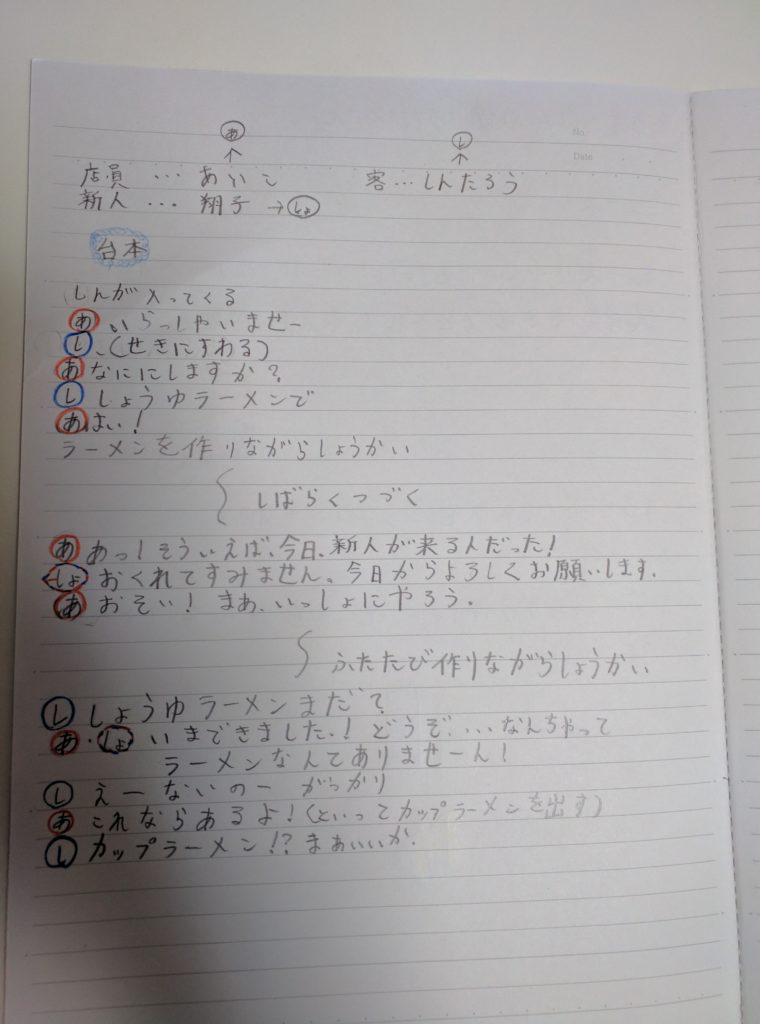 No.
Date
あ し
↑ ↑
店員 … あいこ 客…しんたろう
新人 … 翔子 →しょ
台本
しんが入ってくる
あ いらっしゃいませー
し (せきにすわる)
あ なににしますか?
し しょうゆラーメンで
あ はい!
ラーメンを作りながらしょうかい
しばらくつづく
あ あっ!そういえば、今日、新人が来る人だった!
しょ おくれてすみません。今日からよろしくお願いします.
あ おそい! まあ、いっしょにやろう.
ふたたび作りながらしょうかい
し しょうゆラーメンまだ?
あ・しょ いまできました.! どうぞ.…なんちゃって
ラーメンなんてありませーん!
し えーないのー がっかり
あ これならあるよ!(といってカップラーメンを出す)
し カップラーメン!? まぁいいか.